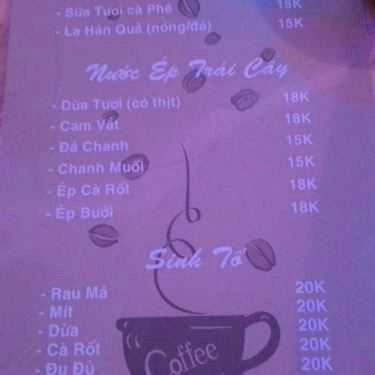 - Sữa Tươi cà Phê 18K
- La Hán Quả (nóng/đá) 15K
Nước Ép Trái Cây
- Dừa Tươi (có thịt) 18K
- Cam Vắt 18K
- Đá Chanh 15K
- Chanh Muối 15K
- Ép Cà Rốt 18K
- Ép Bưởi 18K
Sinh Tố
- Rau Má 20K
- Mít 20K
- Dừa 20K
- Cà Rốt 20K
- Đu Đủ 20K
Coffee